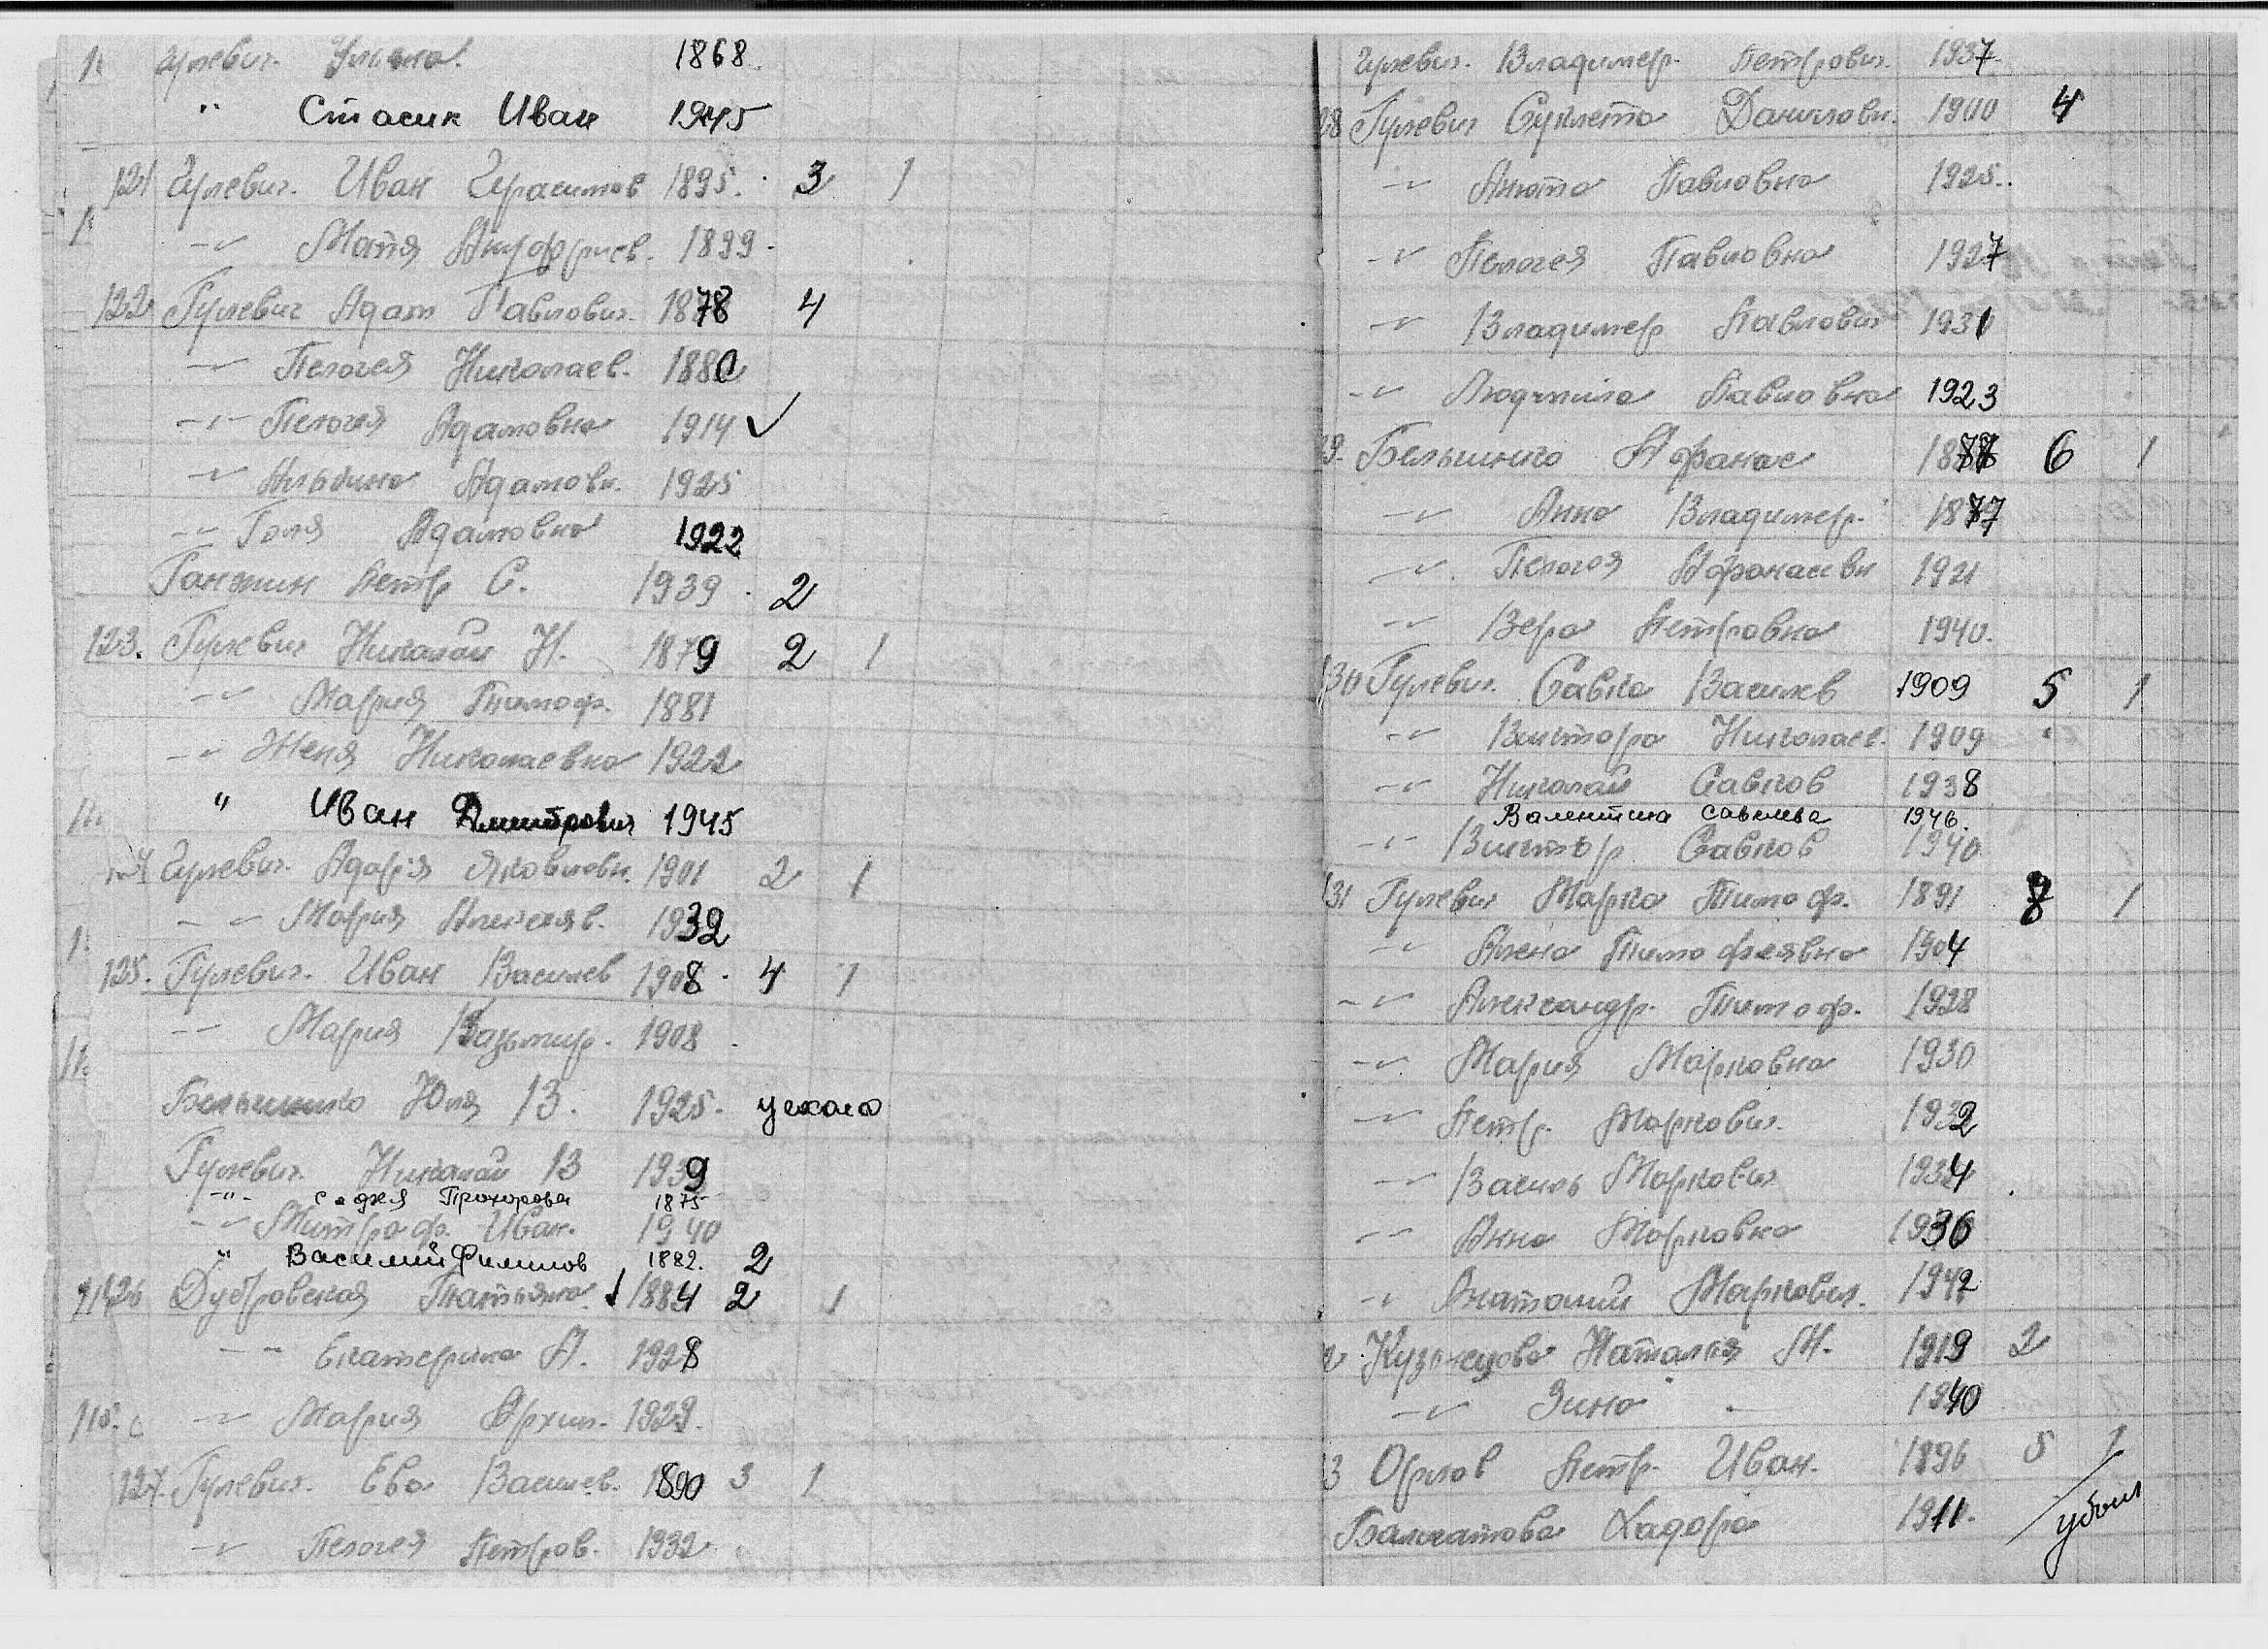 Гулевич. Ульяна. 1868.
" Стасик Иван 1945
121 Гулевич. Иван Герасимов 1895. 3 1
-"- Матя Ануфриев. 1899.
122 Гулевич Адам Павлович. 1878 4
-"- Пелогея Николаев. 1880
-"- Пелогея Адамовна 1914 ✓
-"- Альбина Адамовн. 1925
-"- Голя Адамовна 1922
Ганжин Петр С. 1939. 2
123. Гулевич Николай Н. 1879 2 1
-"- Мария Тимоф. 1881
-"- Женя Николаевна 1922
" Иван Дмитрович 1945
124 Гулевич. Адарья Яковлевн. 1901 2 1
-"- Мария Алексеяв. 1932
125. Гулевич. Иван Василев 1908. 4 1
-"- Мария Казьмир. 1908
Бельчинко Юля В. 1925. уехала
Гулевич. Николай В 1939
-"- Прохоровн 1875
-"- Митроф. Иван. 1940
" Василий Филипов 1882. 2
126 Дубровская Татьяна. 1884 2 1
-"- Екатерина А. 1928
-"- Мария Архип. 1929.
127. Гулевич. Ева Васил̲ев. 1890 3 1
-"- Пелогея Петров. 1932
Гулевич. Владимер. Петрович. 1937
28 Гулевич Суклета Даниловн. 1900 4
-"- Анюта Павловна 1925.
-"- Пелогея Павловна 1927
-"- Владимер Павлович 1931
-"- Людмила Павловна 1923
9. Бельчинко Афанас 1878 6 1
-"- Анна Владимер. 1877
-"- Пелогея Афанасивн 1921
-"- Вера Петровна 1940.
130 Гулевич. Савка Василев 1909 5 1
-"- Виктора Николаев. 1909
-"- Николай Савков 1938
Валентина Савельева 1946.
-"- Виктор Савков 1940
131 Гулевич Марка Тимоф. 1891 8 1
-"- Алена Тимофеявна 1904
-"- Александр. Тимоф. 1928
-"- Мария Марковна 1930
-"- Петр. Маркович. 1932
-"- Василь Маркович 1934
-"- Анна Марковна 1936
-"- Анатолий Маркович. 1942
2 Кузнецова Наталия М. 1919 2
-"- Зина - 1940
3 Орлов Петр. Иван. 1896 5 1
Балматова Хадора 1911. убыл